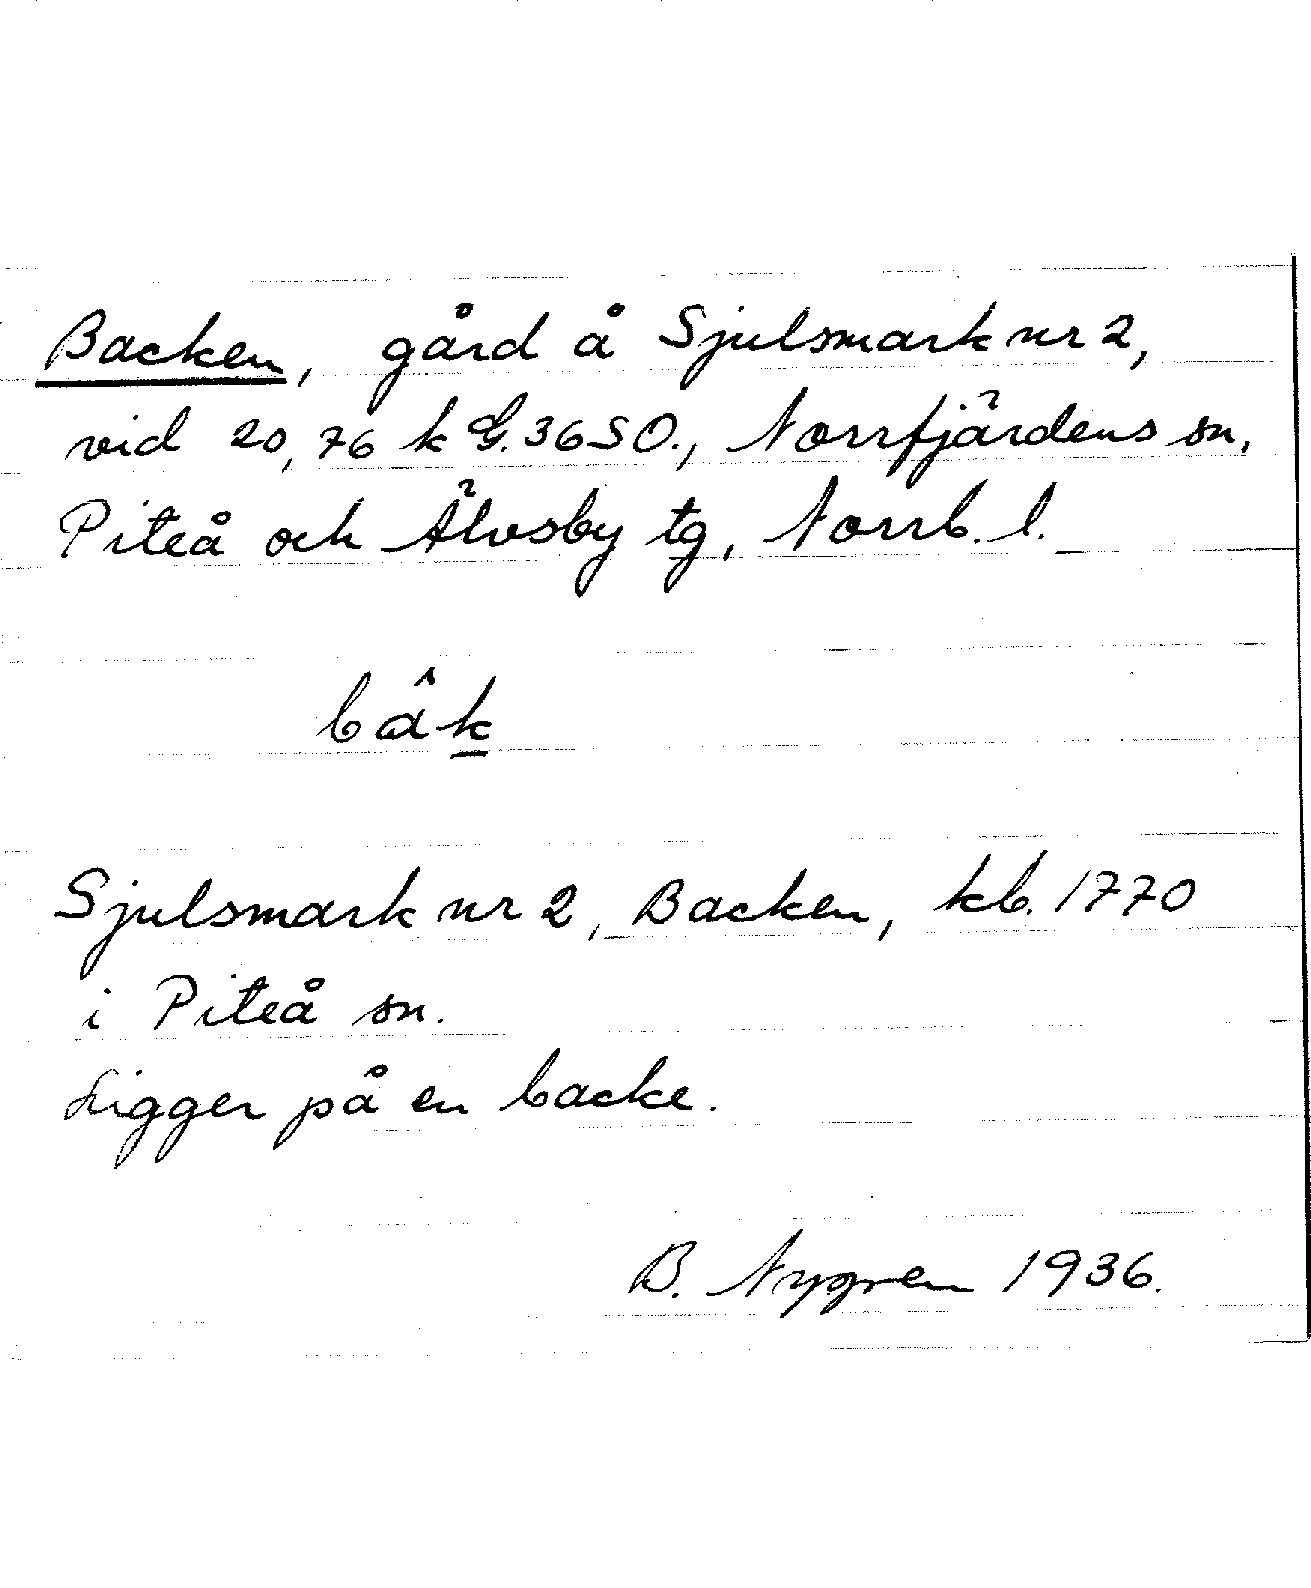 Backen, gård å Sjulsmark nr 2,
vid 20,76 k G.36SO., Norrfjärdens sn,
Piteå och Älvsby tg, Norrb. l.
bâk
Sjulsmark nr 2, Backen, kb. 1770
i Piteå sn.
Ligger på en backe.
B. Nygren 1936.